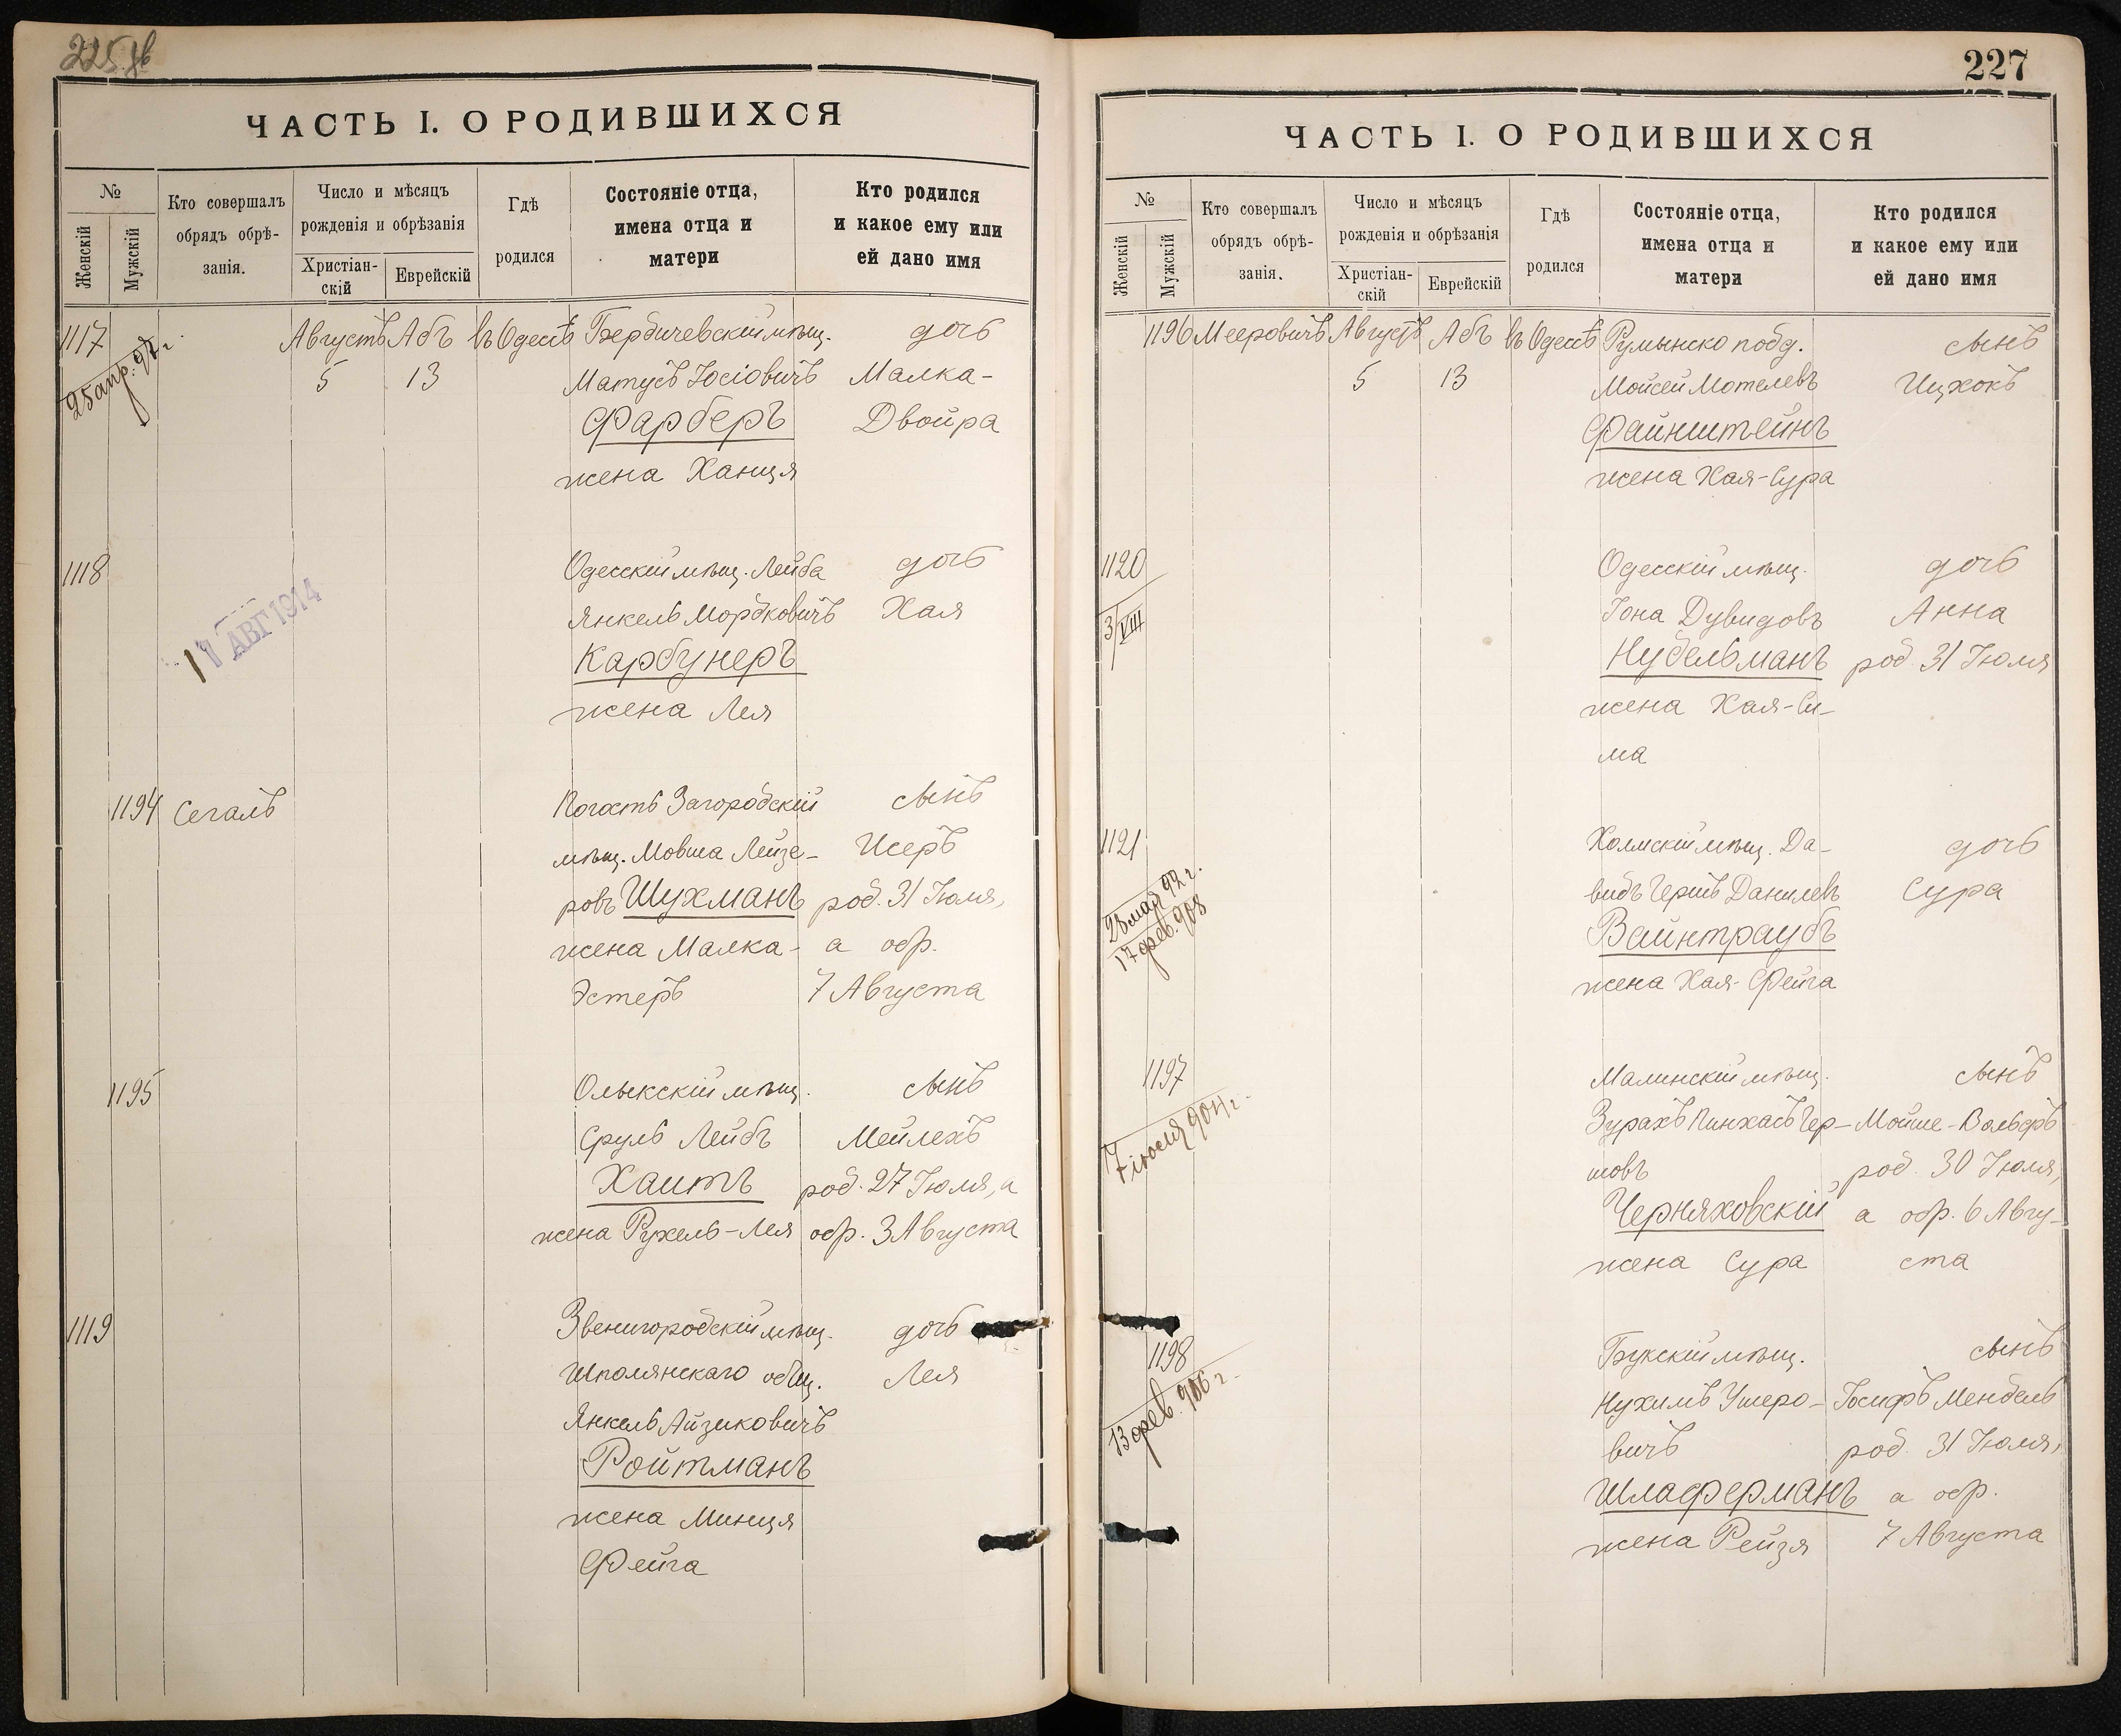 225 об
ЧАСТЬ I. О РОДИВШИХСЯ
№
Женскій
Мужскій
Кто совершалъ
обрядъ обрѣ-
занія.
Число и мѣсяцъ
рожденія и обрѣзанія
Христіан-
скій
Еврейскій
Гдѣ
родился
Состояніе отца,
имена отца и
матери
Кто родился
и какое ему или
ей дано имя
1117 Августъ Абъ въ Одессѣ Бердичевскій мѣщ. дочь
25 апр. 97 г. 5 13 Матусъ Іосіовичъ Малка-
Фарберъ Двойра
жена Ханця
1118 Одесскій мѣщ. Лейба дочь
Янкель Мордковичъ Хая
17 АВГ 1914
Карбунеръ
жена Лея
1194 Сегаль Погостъ Загородскій сынъ
мѣщ. Мовша Лейзе- Исеръ
ровъ Шухманъ род. 31 Іюля,
жена Малка- а обр.
Эстеръ 7 Августа
1195 Олыкскій мѣщ. сынъ
Сруль Лейбъ Мейлехъ
Хаитъ род. 27 Іюля, а
жена Рухель-Лея обр. 3 Августа
1119 Звенигородскій мѣщ. дочь
Шполянскаго общ. Лея
Янкель Айзиковичъ
Ройтманъ
жена Минця
Фейга
227
ЧАСТЬ I. О РОДИВШИХСЯ
№
Женскій
Мужскій
Кто совершалъ
обрядъ обрѣ-
занія.
Число и мѣсяцъ
рожденія и обрѣзанія
Христіан-
скій
Еврейскій
Гдѣ
родился
Состояніе отца,
имена отца и
матери
Кто родился
и какое ему или
ей дано имя
1196 Мееровичъ Августъ Абъ въ Одессѣ Румынско подд. сынъ
5 13 Мойсей Мотелевъ Ицхокъ
Файнштейнъ
жена Хая-Сура
1120 Одесскій мѣщ. дочь
3/VIII Іона Дувидовъ Анна
Нудельманъ род. 31 Іюля
жена Хая-Си-
ма
1121 Холмскій мѣщ. Да- дочь
28 мая 92 г. видъ Гершъ Данилевъ Сура
17 фев. 908
Вайнтраубъ
жена Хая-Фейга
1197 Малинскій мѣщ. сынъ
7 іюля 904 г. Зурахъ Пинхасъ Гер- Мойше-Вольфъ
шовъ род. 30 Іюля,
Черняховскій а обр. 6 Авгу-
жена Сура ста
1198 Букскій мѣщ. сынъ
13 фев. 906 г. Нухимъ Ушеро- Іосифъ Мендель
вичъ род. 31 Іюля,
Шлаферманъ а обр.
жена Рейзя 7 Августа